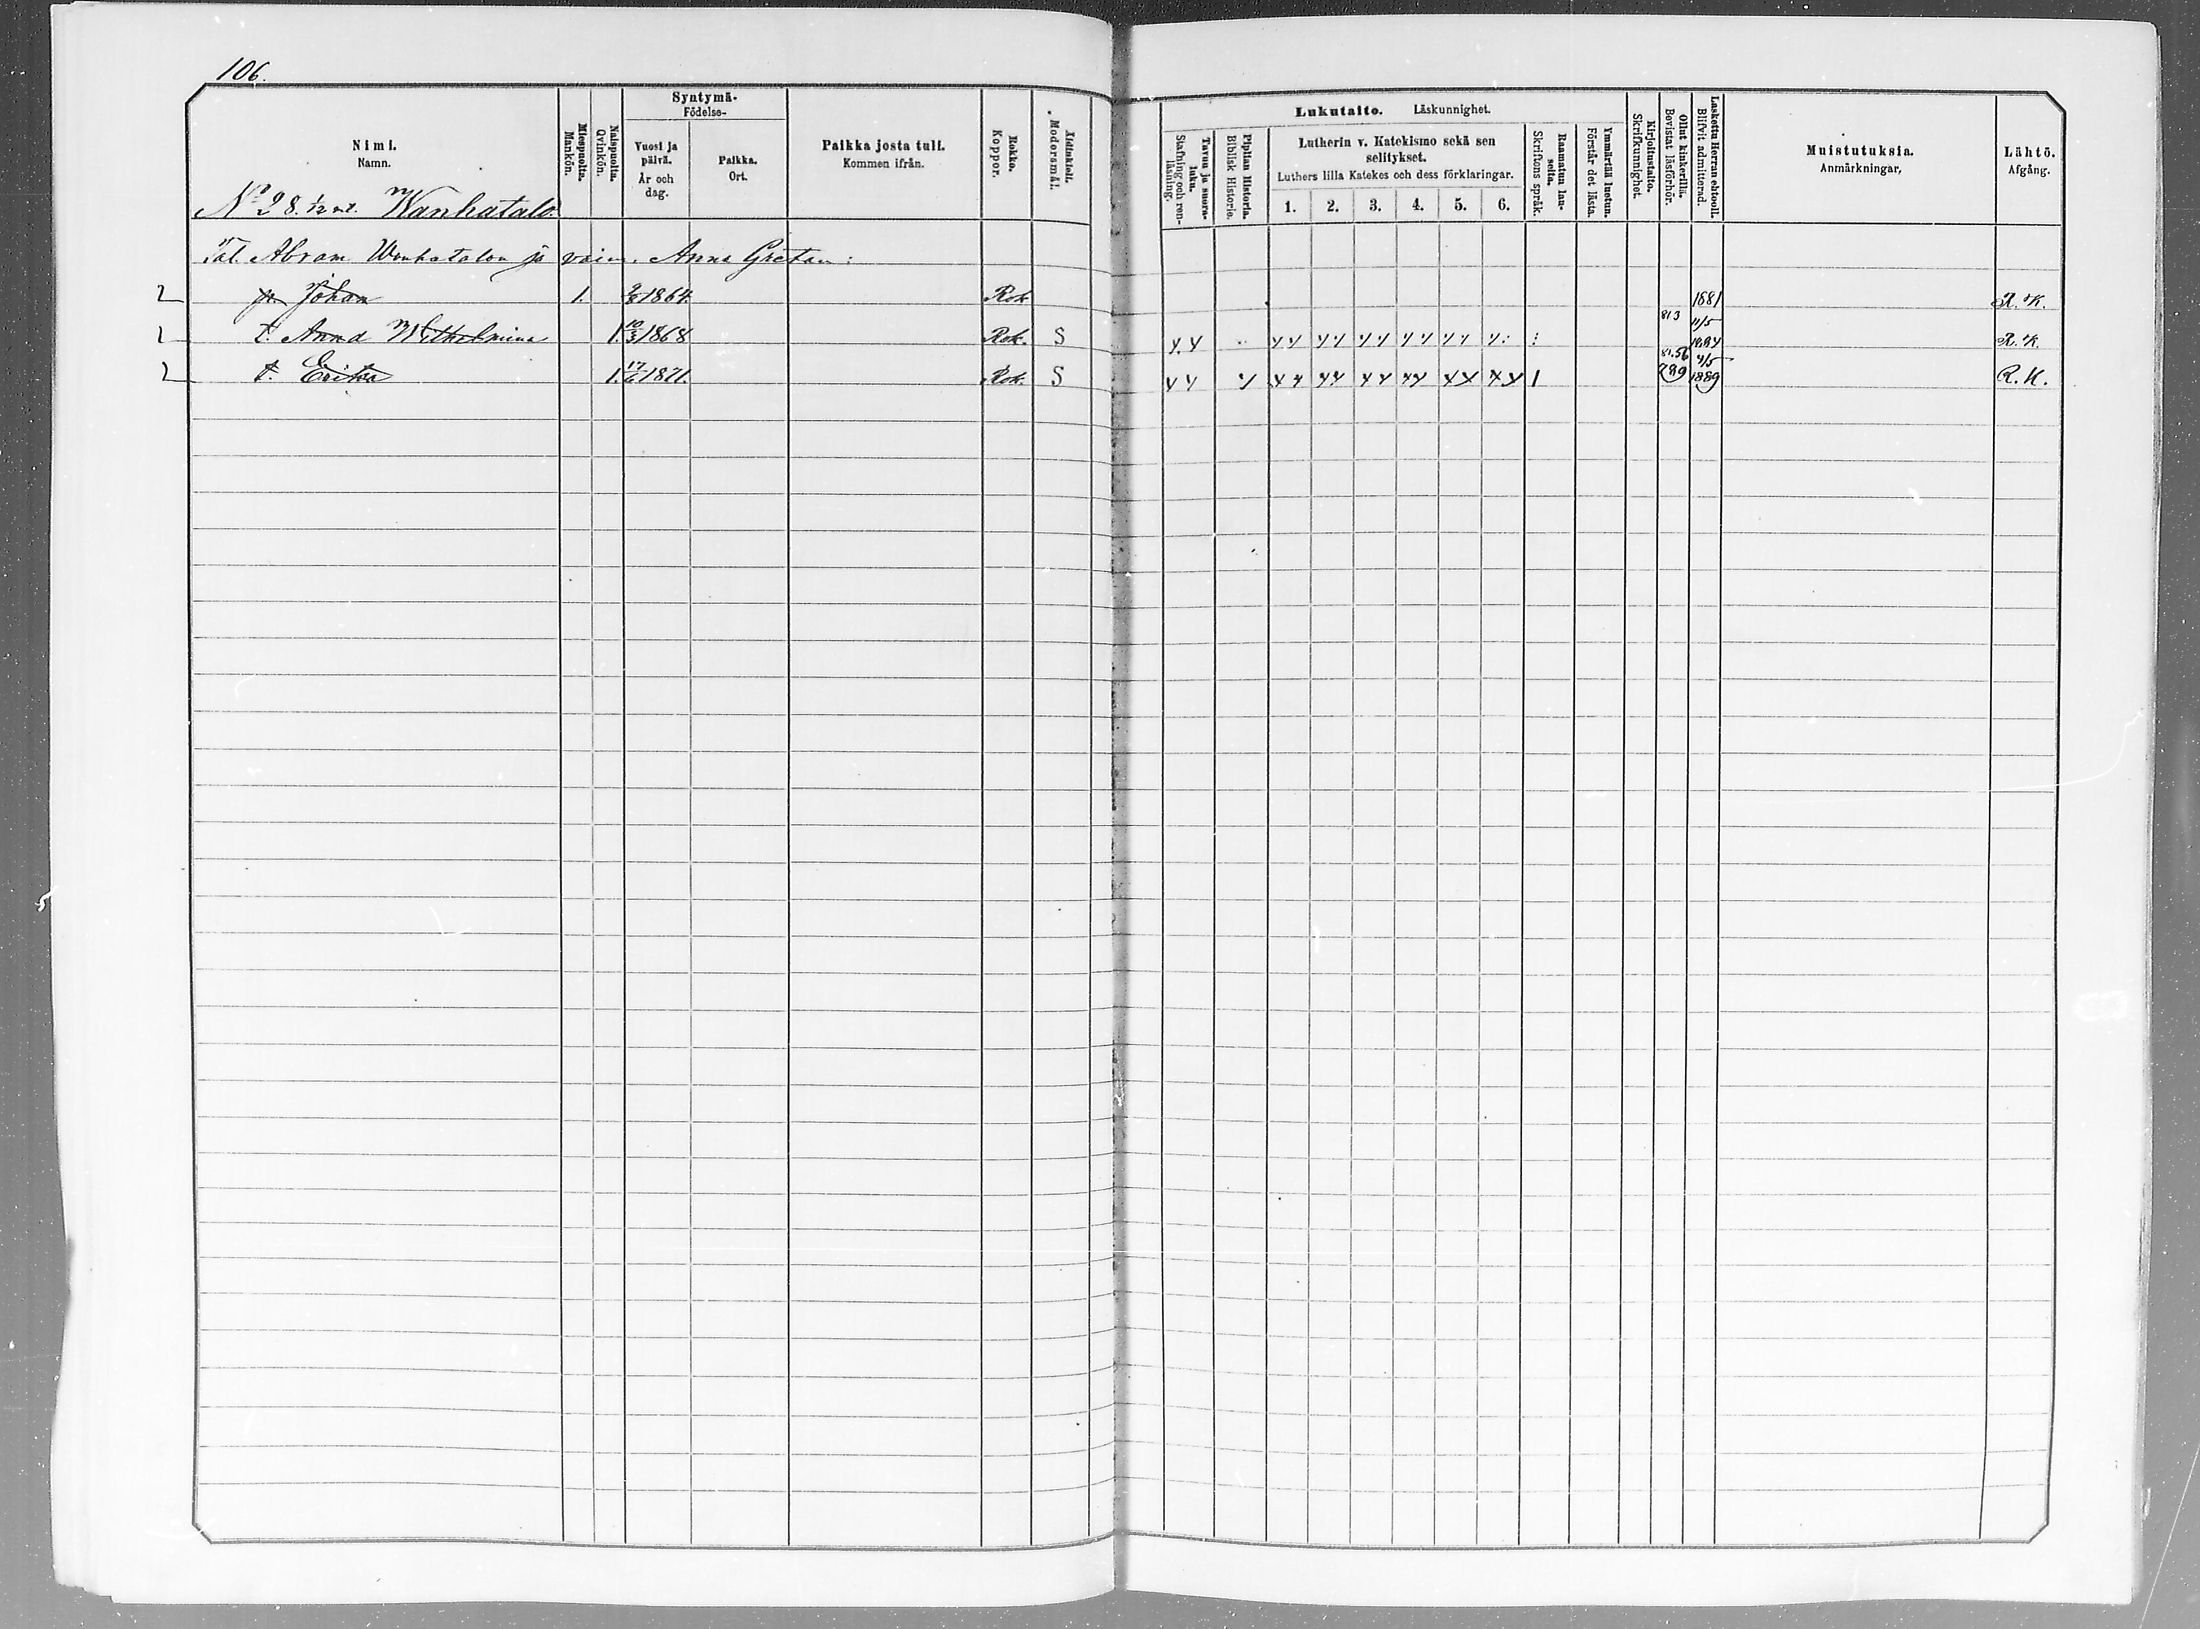 106.
Nimi. Namn.
Miespuolta. Mankön.
Naispuolta. Qvinkön.
Syntymä- Födelse-
Vuosi ja päivä. År och dag.
Paikka. Ort.
Paikka josta tuli. Kommen ifrån.
Rokko. Koppor.
Äidinkieli. Modersmål.
Tavuu ja suora- luku. Stafning och ren- läsning.
Piplian Historia. Biblisk Historie.
Lukutaito. Läskunnighet.
Lutherin v. Katekismo sekä sen selitykset.
Luthers lilla Katekes och dess förklaringar.
1. 2. 3. 4. 5. 6.
Raamatun lau- seita. Skriftens språk.
Ymmärtää luetun. Förstår det lästa.
Kirjoitustaito. Skrifkunnighet.
Ollut kinkerillä. Bevistat läsförhör.
Laskettu Herran ehtooll. Blifvit admitterad.
Muistutuksia. Anmärkningar,
Lähtö. Afgång.
No 28. 1/2 mt. Wanhatalo.
Tal. Abram Wanhatalon ja vaim. Anna Gretan:
p. Johan 1. 1864 Rok 1881 R. K.
t. Anna Wilhelmina 1. 10/3 1868 Rok. S 813 11/5 1884 R. K.
t. Erika 1. 17/6 1871. Rok. S 81.56 789 4/5 1889 R. K.